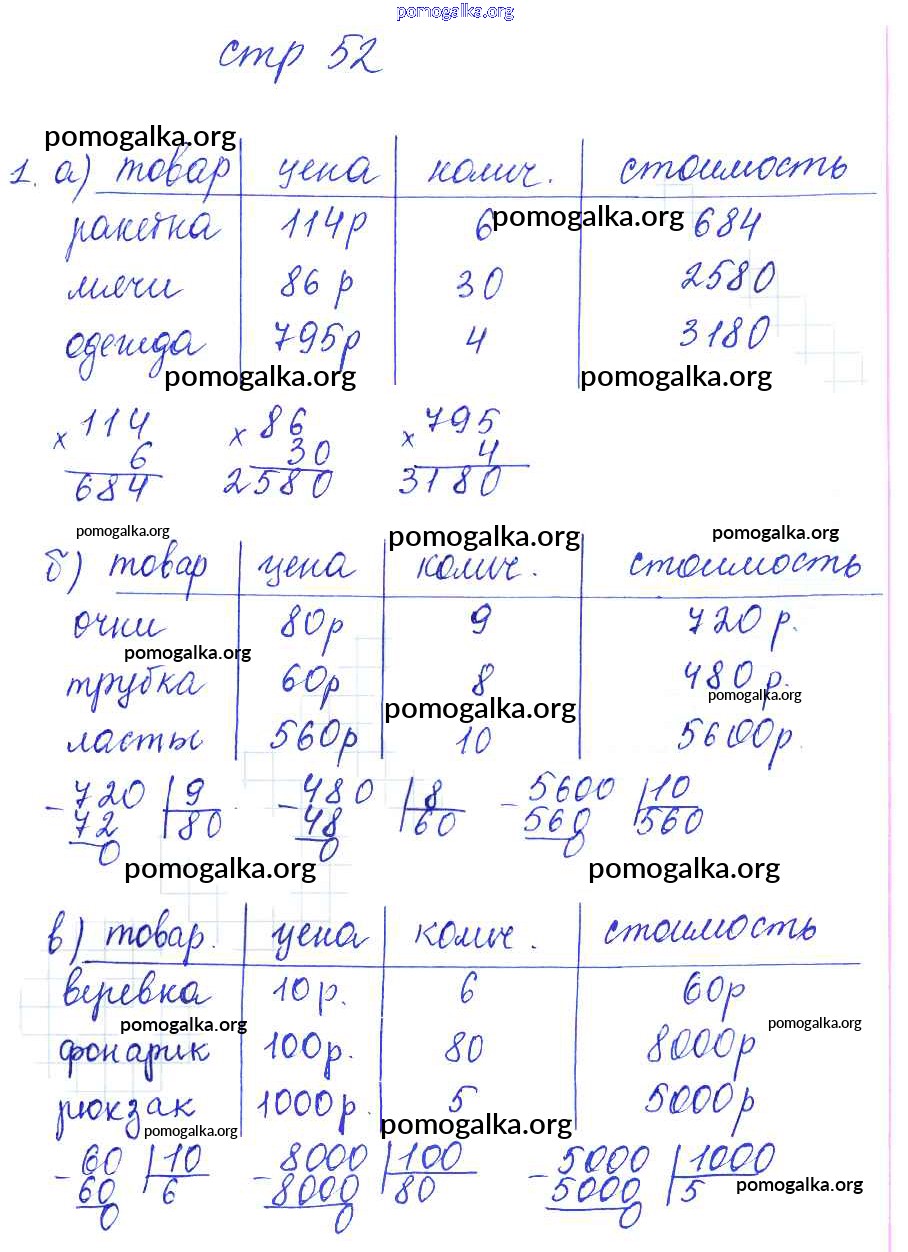 pomogalka.org
стр 52
pomogalka.org
1. а) товар цена колич. стоимость
ракетка 114р 6 pomogalka.org 684
мячи 86 р 30 2580
одежда 795р 4 3180
pomogalka.org pomogalka.org
× 114 × 86 × 795
6 30 4
684 2580 3180
pomogalka.org pomogalka.org pomogalka.org
б) товар цена колич. стоимость
очки 80р 9 720 р.
pomogalka.org
трубка 60р 8 480 р.
pomogalka.org pomogalka.org
ласты 560р 10 5600р.
- 720 9 - 480 8 - 5600 10
72 80 48 60 560 560
0 0 0
pomogalka.org pomogalka.org
в) товар. цена колич. стоимость
веревка 10р. 6 60р
pomogalka.org pomogalka.org
фонарик 100р. 80 8000р
рюкзак 1000р. 5 5000р
pomogalka.org pomogalka.org
- 60 10 - 8000 100 - 5000 1000
60 6 8000 80 5000 5 pomogalka.org
0 0 0